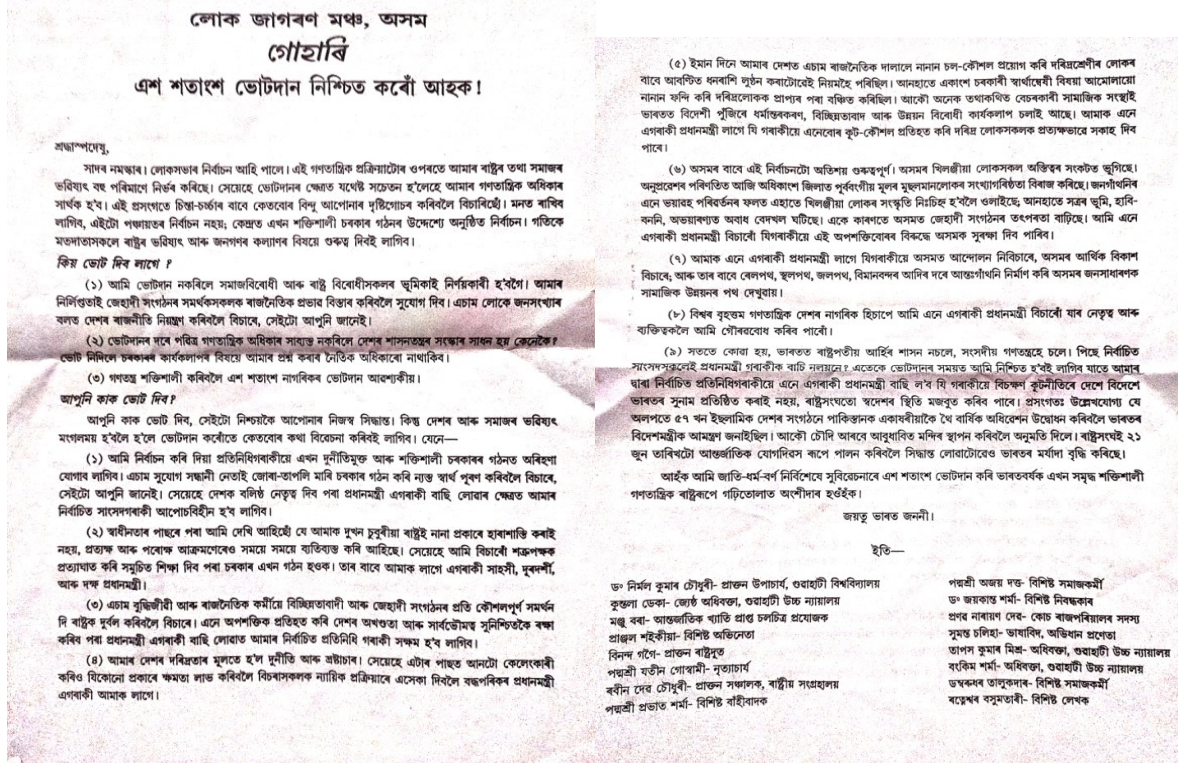 লোক জাগৰণ মঞ্চ, অসম
গোহাৰি
এশ শতাংশ ভোটদান নিশ্চিত কৰোঁ আহক !
শ্ৰদ্ধাস্পদেষু,
সাদৰ নমস্কাৰ। লোকসভাৰ নিৰ্বাচন আহি পালে। এই গণতান্ত্ৰিক প্ৰক্ৰিয়াটোৰ ওপৰতে আমাৰ ৰাষ্ট্ৰৰ তথা সমাজৰ
ভৱিষ্যৎ বহু পৰিমাণে নিৰ্ভৰ কৰিছে। সেয়েহে ভোটদানৰ ক্ষেত্ৰত যথেষ্ট সচেতন হ'লেহে আমাৰ গণতান্ত্ৰিক অধিকাৰ
সাৰ্থক হ'ব। এই প্ৰসংগতে চিন্তা-চৰ্চ্চাৰ বাবে কেতবোৰ বিন্দু আপোনাৰ দৃষ্টিগোচৰ কৰিবলৈ বিচাৰিছোঁ। মনত ৰাখিব
লাগিব, এইটো পঞ্চায়তৰ নিৰ্বাচন নহয়; কেন্দ্ৰত এখন শক্তিশালী চৰকাৰ গঠনৰ উদ্দেশ্যে অনুষ্ঠিত নিৰ্বাচন। গতিকে
মতদাতাসকলে ৰাষ্ট্ৰৰ ভৱিষ্যৎ আৰু জনগণৰ কল্যাণৰ বিষয়ে গুৰুত্ব দিবই লাগিব।
কিয় ভোট দিব লাগে ?
(১) আমি ভোটদান নকৰিলে সমাজবিৰোধী আৰু ৰাষ্ট্ৰ বিৰোধীসকলৰ ভূমিকাই নিৰ্ণয়কাৰী হ'বগৈ। আমাৰ
নিৰ্লিপ্ততাই জেহাদী সংগঠনৰ সমৰ্থকসকলক ৰাজনৈতিক প্ৰভাৱ বিস্তাৰ কৰিবলৈ সুযোগ দিব। এচাম লোকে জনসংখ্যাৰ
বলত দেশৰ ৰাজনীতি নিয়ন্ত্ৰণ কৰিবলৈ বিচাৰে, সেইটো আপুনি জানেই।
(২) ভোটদানৰ দৰে পৱিত্ৰ গণতান্ত্ৰিক অধিকাৰ সাব্যস্ত নকৰিলে দেশৰ শাসনতন্ত্ৰৰ সংস্কাৰ সাধন হ'ব কেনেকৈ?
ভোট নিদিলে চৰকাৰৰ কাৰ্যকলাপৰ বিষয়ে আমাৰ প্ৰশ্ন কৰাৰ নৈতিক অধিকাৰো নাথাকিব।
(৩) গণতন্ত্ৰ শক্তিশালী কৰিবলৈ এশ শতাংশ নাগৰিকৰ ভোটদান আৱশ্যকীয়।
আপুনি কাক ভোট দিব?
আপুনি কাক ভোট দিব, সেইটো নিশ্চয়কৈ আপোনাৰ নিজস্ব সিদ্ধান্ত। কিন্তু দেশৰ আৰু সমাজৰ ভৱিষ্যৎ
মংগলময় হ'বলৈ হ'লে ভোটদান কৰোঁতে কেতবোৰ কথা বিবেচনা কৰিবই লাগিব। যেনে—
(১) আমি নিৰ্বাচন কৰি দিয়া প্ৰতিনিধিগৰাকীয়ে এখন দুৰ্নীতিমুক্ত আৰু শক্তিশালী চৰকাৰৰ গঠনত অৰিহণা
যোগাব লাগিব। এচাম সুযোগ সন্ধানী নেতাই জোৰা-তাপলি মাৰি চৰকাৰ গঠন কৰি ন্যস্ত স্বাৰ্থ পূৰণ কৰিবলৈ বিচাৰে,
সেইটো আপুনি জানেই। সেয়েহে দেশক বলিষ্ঠ নেতৃত্ব দিব পৰা প্ৰধানমন্ত্ৰী এগৰাকী বাছি লোৱাৰ ক্ষেত্ৰত আমাৰ
নিৰ্বাচিত সাংসদগৰাকী আপোচবিহীন হ'ব লাগিব।
(২) স্বাধীনতাৰ পাছৰে পৰা আমি দেখি আহিছোঁ যে আমাক দুখন চুবুৰীয়া ৰাষ্ট্ৰই নানা প্ৰকাৰে হাৰাশাস্তি কৰাই
নহয়, প্ৰত্যক্ষ আৰু পৰোক্ষ আক্ৰমণেৰেও সময়ে সময়ে ব্যতিব্যস্ত কৰি আহিছে। সেয়েহে আমি বিচাৰোঁ শত্ৰুপক্ষক
প্ৰত্যাঘাত কৰি সমুচিত শিক্ষা দিব পৰা চৰকাৰ এখন গঠন হওক। তাৰ বাবে আমাক লাগে এগৰাকী সাহসী, দূৰদৰ্শী,
আৰু দক্ষ প্ৰধানমন্ত্ৰী।
(৩) এচাম বুদ্ধিজীৱী আৰু ৰাজনৈতিক কৰ্মীয়ে বিচ্ছিন্নতাবাদী আৰু জেহাদী সংগঠনৰ প্ৰতি কৌশলপূৰ্ণ সমৰ্থন
দি ৰাষ্ট্ৰক দুৰ্বল কৰিবলৈ বিচাৰে। এনে অপশক্তিক প্ৰতিহত কৰি দেশৰ অখণ্ডতা আৰু সাৰ্বভৌমত্ব সুনিশ্চিতকৈ ৰক্ষা
কৰিব পৰা প্ৰধানমন্ত্ৰী এগৰাকী বাছি লোৱাত আমাৰ নিৰ্বাচিত প্ৰতিনিধি গৰাকী সক্ষম হ'ব লাগিব।
(৪) আমাৰ দেশৰ দৰিদ্ৰতাৰ মূলতে হ'ল দুৰ্নীতি আৰু ভ্ৰষ্টাচাৰ। সেয়েহে এটাৰ পাছত আনটো কেলেংকাৰী
কৰিও যিকোনো প্ৰকাৰে ক্ষমতা লাভ কৰিবলৈ বিচৰাসকলক ন্যায়িক প্ৰক্ৰিয়াৰে এসেকা দিবলৈ বদ্ধপৰিকৰ প্ৰধানমন্ত্ৰী
এগৰাকী আমাক লাগে।
(৫) ইমান দিনে আমাৰ দেশত এচাম ৰাজনৈতিক দালালে নানান চল-কৌশল প্ৰয়োগ কৰি দৰিদ্ৰশ্ৰেণীৰ লোকৰ
বাবে আবণ্টিত ধনৰাশি লুণ্ঠন কৰাটোৱেই নিয়মহৈ পৰিছিল। আনহাতে একাংশ চৰকাৰী স্বাৰ্থান্বেষী বিষয়া আমোলায়ো
নানান ফন্দি কৰি দৰিদ্ৰলোকক প্ৰাপ্যৰ পৰা বঞ্চিত কৰিছিল। আকৌ অনেক তথাকথিত বেচৰকাৰী সামাজিক সংস্থাই
ভাৰতত বিদেশী পুঁজিৰে ধৰ্মান্তৰকৰণ, বিচ্ছিন্নতাবাদ আৰু উন্নয়ন বিৰোধী কাৰ্যকলাপ চলাই আছে। আমাক এনে
এগৰাকী প্ৰধানমন্ত্ৰী লাগে যি গৰাকীয়ে এনেবোৰ কূট-কৌশল প্ৰতিহত কৰি দৰিদ্ৰ লোকসকলক প্ৰত্যক্ষভাৱে সকাহ দিব
পাৰে।
(৬) অসমৰ বাবে এই নিৰ্বাচনটো অতিশয় গুৰুত্বপূৰ্ণ। অসমৰ খিলঞ্জীয়া লোকসকল অস্তিত্বৰ সংকটত ভুগিছে।
অনুপ্ৰৱেশৰ পৰিণতিত আজি অধিকাংশ জিলাত পূৰ্ববংগীয় মূলৰ মুছলমানলোকৰ সংখ্যাগৰিষ্ঠতা বিৰাজ কৰিছে। জনগাঁথনিৰ
এনে ভয়াৱহ পৰিৱৰ্তনৰ ফলত এহাতে খিলঞ্জীয়া লোকৰ সংস্কৃতি নিঃচিহ্ন হ'বলৈ ওলাইছে; আনহাতে সত্ৰৰ ভূমি, হাবি-
বননি, অভয়াৰণ্যত অবাধ বেদখল ঘটিছে। একে কাৰণতে অসমত জেহাদী সংগঠনৰ তৎপৰতা বাঢ়িছে। আমি এনে
এগৰাকী প্ৰধানমন্ত্ৰী বিচাৰোঁ যিগৰাকীয়ে এই অপশক্তিবোৰৰ বিৰুদ্ধে অসমক সুৰক্ষা দিব পাৰিব।
(৭) আমাক এনে এগৰাকী প্ৰধানমন্ত্ৰী লাগে যিগৰাকীয়ে অসমত আন্দোলন নিবিচাৰে, অসমৰ আৰ্থিক বিকাশ
বিচাৰে; আৰু তাৰ বাবে ৰেলপথ, স্থলপথ, জলপথ, বিমানবন্দৰ আদিৰ দৰে আন্তঃগাঁথনি নিৰ্মাণ কৰি অসমৰ জনসাধাৰণক
সামাজিক উন্নয়নৰ পথ দেখুৱায়।
(৮) বিশ্বৰ বৃহত্তম গণতান্ত্ৰিক দেশৰ নাগৰিক হিচাপে আমি এনে এগৰাকী প্ৰধানমন্ত্ৰী বিচাৰোঁ যাৰ নেতৃত্ব আৰু
ব্যক্তিত্বকলৈ আমি গৌৰৱবোধ কৰিব পাৰোঁ।
(৯) সততে কোৱা হয়, ভাৰতত ৰাষ্ট্ৰপতীয় আৰ্হিৰ শাসন নচলে, সংসদীয় গণতন্ত্ৰহে চলে। পিছে নিৰ্বাচিত
সাংসদসকলেই প্ৰধানমন্ত্ৰী গৰাকীক বাচি নলয়নে? এতেকে ভোটদানৰ সময়ত আমি নিশ্চিত হ'বই লাগিব যাতে আমাৰ
দ্বাৰা নিৰ্বাচিত প্ৰতিনিধিগৰাকীয়ে এনে এগৰাকী প্ৰধানমন্ত্ৰী বাছি ল'ব যি গৰাকীয়ে বিচক্ষণ কূটনীতিৰে দেশে বিদেশে
ভাৰতৰ সুনাম প্ৰতিষ্ঠিত কৰাই নহয়, ৰাষ্ট্ৰসংঘতো স্বদেশৰ স্থিতি মজবুত কৰিব পাৰে। প্ৰসংগতঃ উল্লেখযোগ্য যে
অলপতে ৫৭ খন ইছলামিক দেশৰ সংগঠনে পাকিস্তানক একাষৰীয়াকৈ থৈ বাৰ্ষিক অধিৱেশন উদ্বোধন কৰিবলৈ ভাৰতৰ
বিদেশমন্ত্ৰীক আমন্ত্ৰণ জনাইছিল। আকৌ চৌদি আৰবে আবুধাবিত মন্দিৰ স্থাপন কৰিবলৈ অনুমতি দিলে। ৰাষ্ট্ৰসংঘই ২১
জুন তাৰিখটো আন্তৰ্জাতিক যোগদিৱস ৰূপে পালন কৰিবলৈ সিদ্ধান্ত লোৱাটোৱেও ভাৰতৰ মৰ্যাদা বৃদ্ধি কৰিছে।
আহঁক আমি জাতি-ধৰ্ম-বৰ্ণ নিৰ্বিশেষে সুবিৱেচনাৰে এশ শতাংশ ভোটদান কৰি ভাৰতবৰ্ষক এখন সমৃদ্ধ শক্তিশালী
গণতান্ত্ৰিক ৰাষ্ট্ৰৰূপে গঢ়িতোলাত অংশীদাৰ হওঁহঁক।
জয়তু ভাৰত জননী।
ইতি—
ডঃ নিৰ্মল কুমাৰ চৌধুৰী- প্ৰাক্তন উপাচাৰ্য, গুৱাহাটী বিশ্ববিদ্যালয়
কুন্তলা ডেকা- জ্যেষ্ঠ অধিবক্তা, গুৱাহাটী উচ্চ ন্যায়ালয়
মঞ্জু বৰা- আন্তৰ্জাতিক খ্যাতি প্ৰাপ্ত চলচিত্ৰ প্ৰযোজক
প্ৰাঞ্জল শইকীয়া- বিশিষ্ট অভিনেতা
বিনন্দ গগৈ- প্ৰাক্তন ৰাষ্ট্ৰদূত
পদ্মশ্ৰী যতীন গোস্বামী- নৃত্যাচাৰ্য
ৰবীন দেৱ চৌধুৰী- প্ৰাক্তন সঞ্চালক, ৰাষ্ট্ৰীয় সংগ্ৰহালয়
পদ্মশ্ৰী প্ৰভাত শৰ্মা- বিশিষ্ট বাঁহীবাদক
পদ্মশ্ৰী অজয় দত্ত- বিশিষ্ট সমাজকৰ্মী
ডঃ জয়কান্ত শৰ্মা- বিশিষ্ট নিবন্ধকাৰ
প্ৰণৱ নাৰায়ণ দেৱ- কোচ ৰাজপৰিয়ালৰ সদস্য
সুমন্ত চলিহা- ভাষাবিদ, অভিধান প্ৰণেতা
তাপস কুমাৰ মিশ্ৰ- অধিবক্তা, গুৱাহাটী উচ্চ ন্যায়ালয়
বংকিম শৰ্মা- অধিবক্তা, গুৱাহাটী উচ্চ ন্যায়ালয়
ডম্বৰুধৰ তালুকদাৰ- বিশিষ্ট সমাজকৰ্মী
ৰত্নেশ্বৰ বসুমতাৰী- বিশিষ্ট লেখক